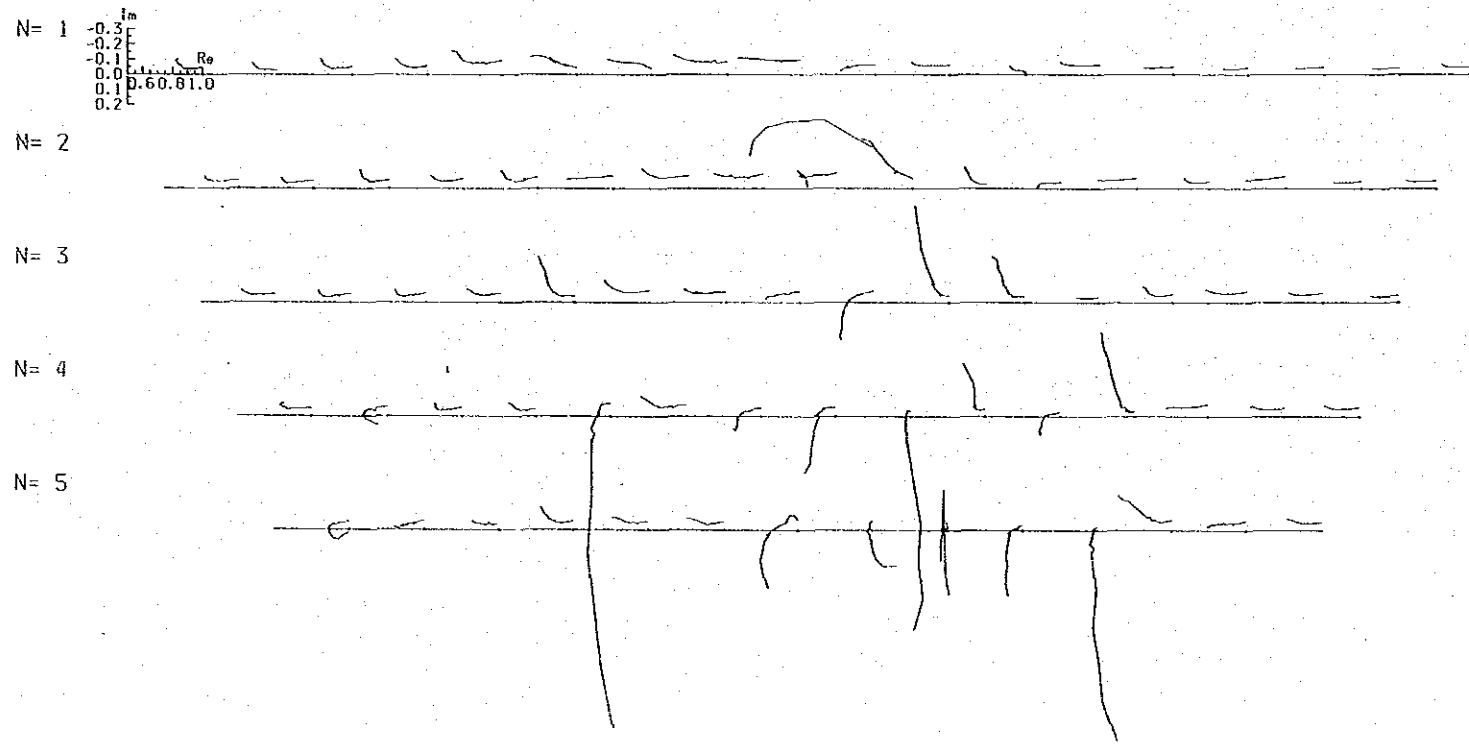 N= 1
Im
-0.3
-0.2
-0.1
0.0
0.1
0.2
Re
0.60.81.0
N= 2
N= 3
N= 4
N= 5